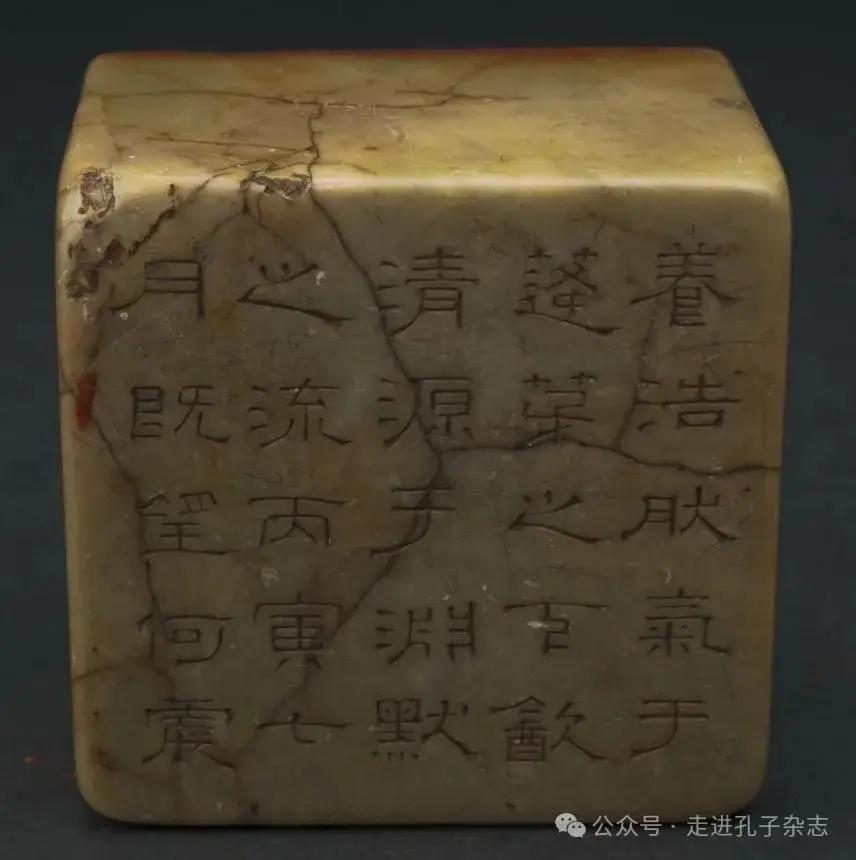 養浩肰氣于
蓬莱之㱃
清源于淵默
之流丙寅七
月既望何震
公众号 · 走进孔子杂志